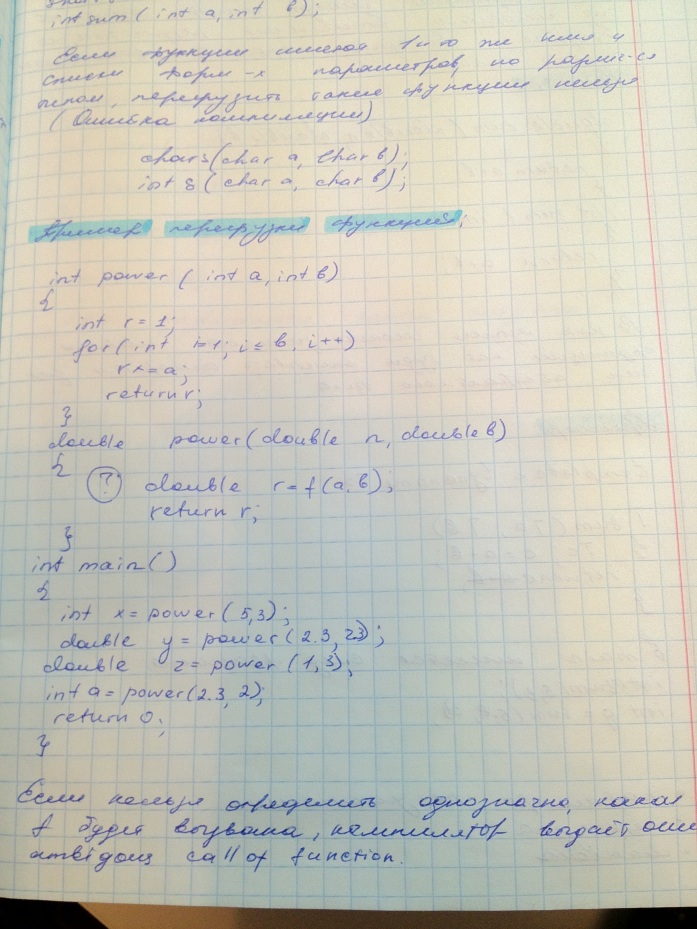 int sum (int a, int b);
Если функции имеют 1 и то же имя и
списки форм-х параметров, но различ-ся
типом, перегрузить такие функции нельзя
(Ошибка компиляции)
char s(char a, char b);
int s (char a, char b);
Пример перегрузки функций:
int power ( int a, int b)
{
int r = 1;
for (int i=1; i ≤ b; i++)
r*=a;
return r;
}
double power(double n, double b)
{
? double r=f(a,b);
return r;
}
int main()
{
int x=power(5,3);
double y=power(2.3, 23);
double z=power (1,3);
int a=power(2.3, 2);
return 0;
}
Если нельзя определить однозначно, какая
f будет вызвана, компилятор выдаёт оши
ambigous call of function.